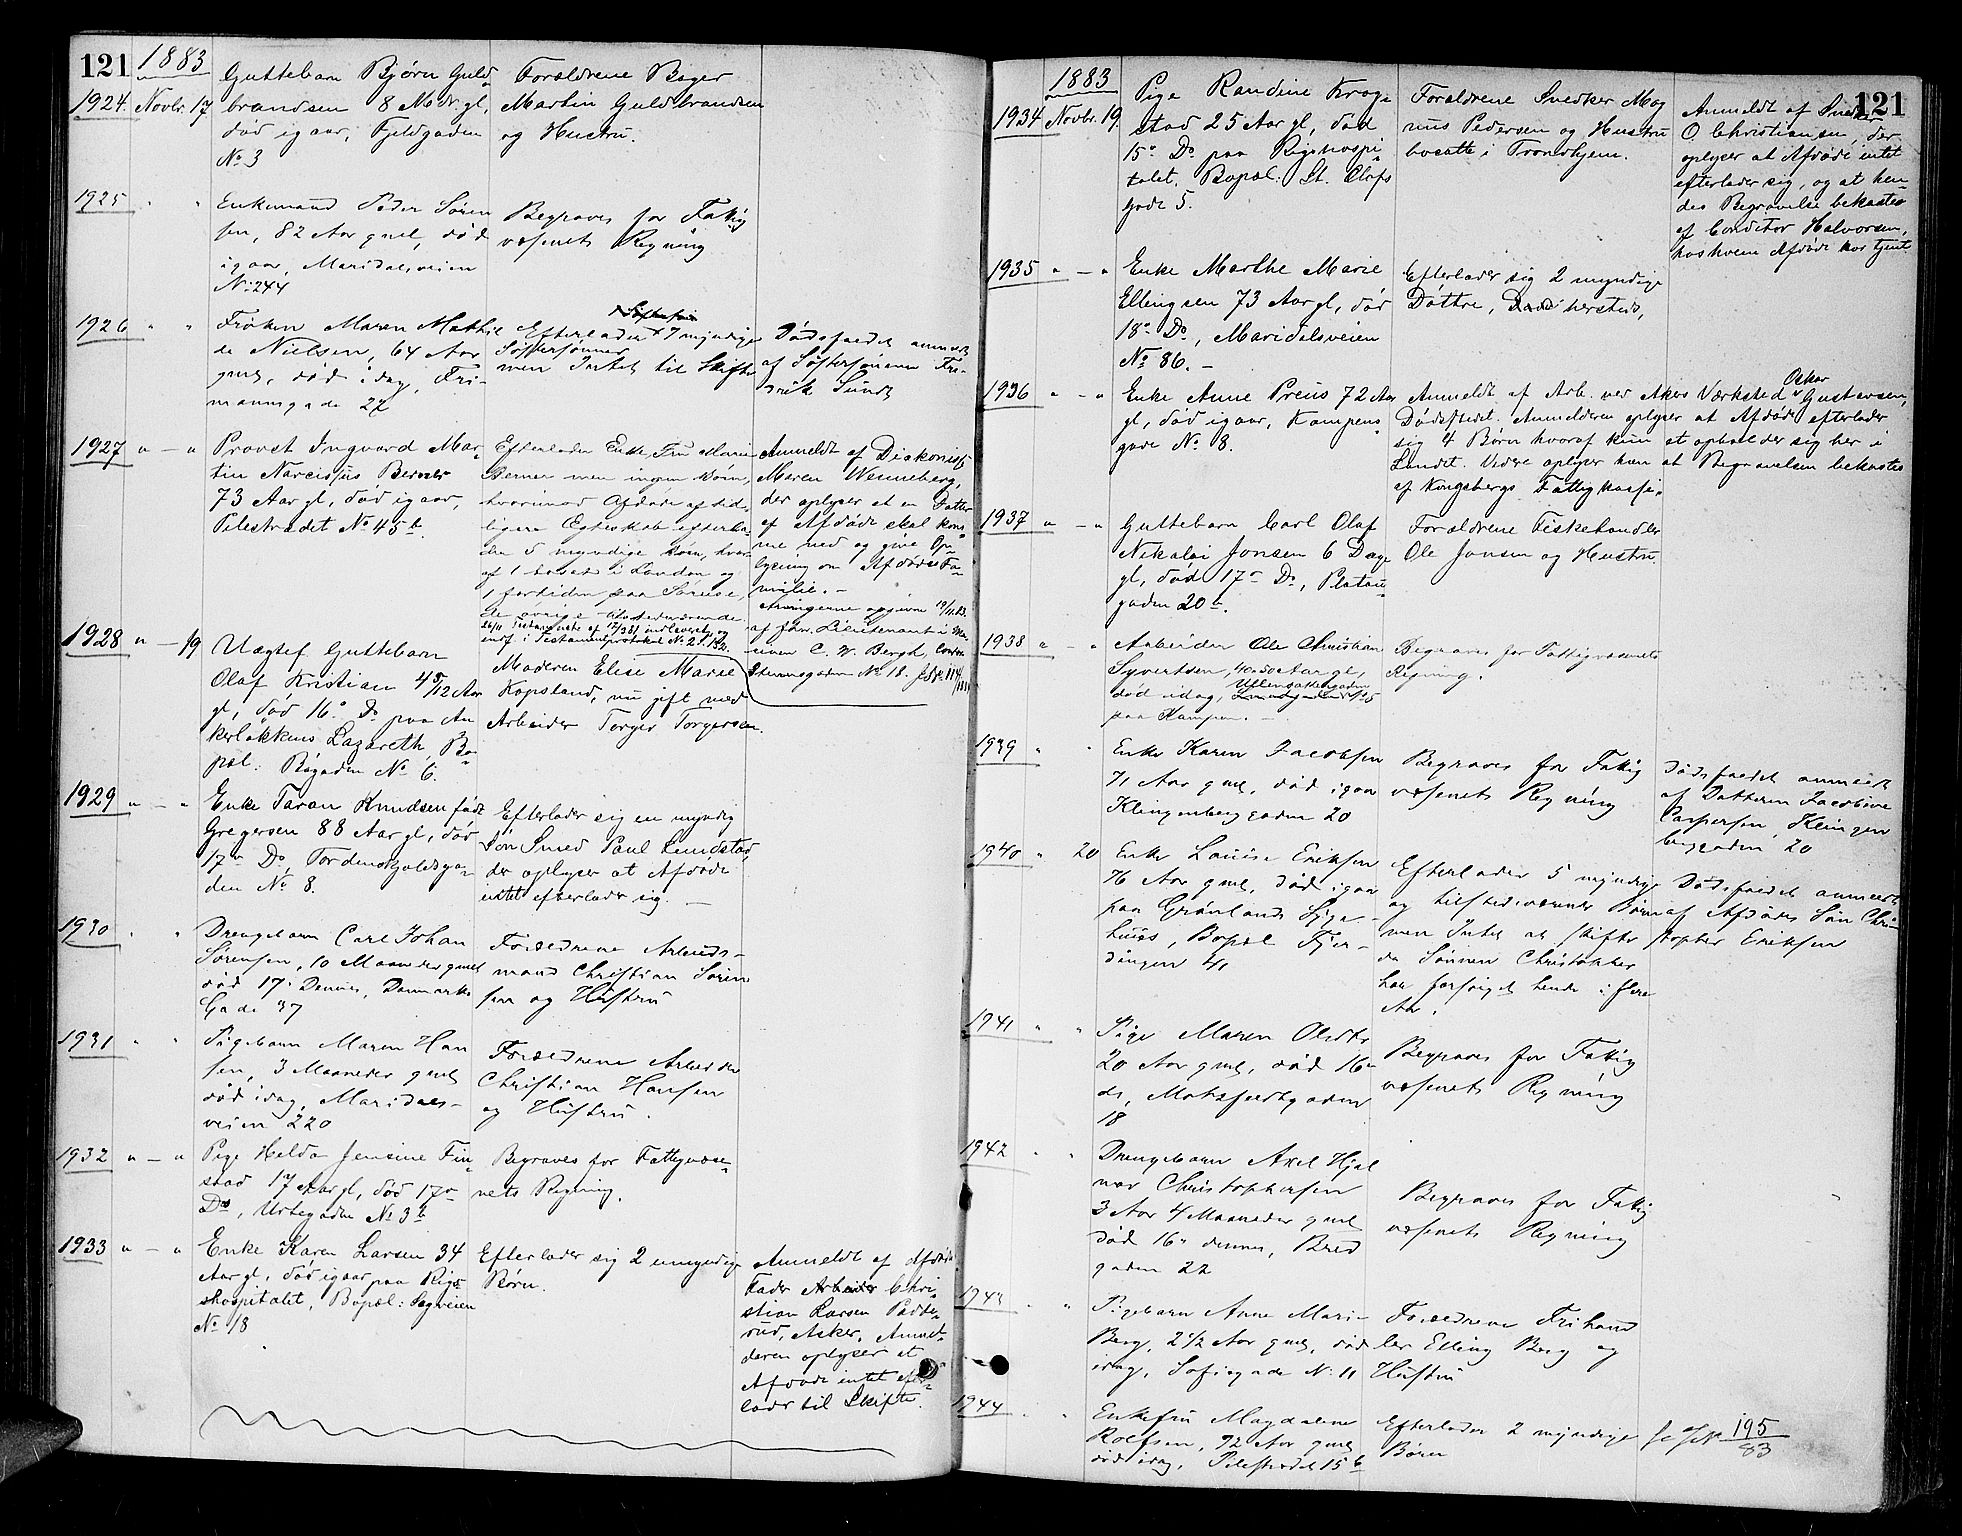 121 1883
1924. Novbr. 17 Guttebarn Bjørn Guld-
brandsen 8 Mdr. gl,
død igaar, Fjeldgaden
No 3
Forældrene Bager
Martin Guldbrandsen
og Hustru.
1925 " " Enkemand Peder Søren
sen, 82 Aar gmel, død
igaar, Maridalsveien
No 244
Begraves for Fattig
væsenets Regning
1926 " " Frøken Maren Mathil
de Nielsen, 64 Aar
gmel, død idag, Fri-
mannsgade 22
Efterlader 7 myndige
Søstersønner
men Intet til Skifte
Dødsfaldet anmeldt
af Søstersønnen Fre-
drik Sundt
1927 " — " Provst Ingvard Mar-
tin Narcissus Berner
73 Aar gl, død igaar,
Pilestrædet No 45 b.
Efterlader Enke, Fru Marie
Berner men ingen Børn,
hvorimod Afdøde af tid-
ligere Egteskab efterla-
der 5 myndige Børn, hvor-
af 1 bosat i London og
1 fortiden paa Reise,
de øvrige tilstedeværende
26/11 Testamente af 17/3 81 indleveret og
indf i Testamentprotokol No 2 f. 132.
Anmeldt af Diakonisse
Maren Wenneberg,
der oplyser at en Datter
af Afdøde skal kom-
me ned og give Op-
lysning om Afdødes Fa-
milie. —
Arvingerne opgivne 19/11 83
af Lieutenant i Ma-
rinen C. W. Bergh,
No 18.
1928 " — 19 Uægtef Guttebarn
Olaf Kristian 4 5/12 Aar
gl, død 16de Ds paa An-
kerløkkens Lazareth, Bo-
pæl: Bøgaden No 6.
Moderen Elise Marie
Kopsland, nu gift med
Arbeider Torger Torgersen.
1929 " — " Enke Taran Knudsen født
Gregersen 88 Aar gl, død
17de Ds, Tordenskjoldsga-
den No 8.
Efterlader sig en myndig
Søn Smed Paul Lundstad,
der oplyser at Afdøde
intet efterlader sig. —
1930 " " Drengebarn Carl Johan
Sørensen, 10 Maaneder gmel
død 17. Dennes, Danmarks
Gade 37
Forældrene Arbeids-
mand Christian Søren
sen og Hustru
1931 " " Pigebarn Maren Han
sen, 3 Maaneder gmel
død idag, Maridals-
veien 220
Forældrene Arbeider
Christian Hansen
og Hustru.
1932 " — " Pige Helda Jensine Fin-
stad 17 Aar gl, død 17de
Ds, Urtegaden No 3 b
Begraves for Fattigvæse-
nets Regning.
1933 " — " Enke Karen Larsen 34
Aar gl, død igaar paa Rigs-
hospitalet, Bopæl: Sagveien
No 18
Efterlader sig 2 umyndige
Børn.
Anmeldt af Afdødes
Fader Arbeider Chri-
stian Larsen Padde-
rud, Asker. Anmel-
deren oplyser at
Afdøde intet efter-
lader til Skifte.
1883 121
1934 Novbr. 19. Pige Randine Krog-
stad 25 Aar gl, død
15de Ds paa Rigshospi-
talet. Bopæl: St. Olafs
Gade 5.
Forældrene Snedker Mag
nus Pedersen og Hustru
bosatte i Trondhjem.
Anmeldt af Snedker
O. Christiansen, der
oplyser at Afdøde intet
efterlader sig, og at hen-
des Begravelse bekostes
af Conditor Halvorsen,
hos hvem Afdøde har tjent.
1935 " — " Enke Marthe Marie
Ellingsen 73 Aar gl, død
18de Ds, Maridalsveien
No 86. —
Efterlader sig 2 myndige
Døttre, hersteds,
1936 " — " Enke Anne Preus 72 Aar
gl, død igaar, Kampens-
gade No 8.
Anmeldt af Arb. ved Akers Værksted Oskar Gustavsen,
Dødsstedet. Anmelderen oplyser at Afdøde efterlader
sig 4 Børn hvoraf kun et opholder sig her i
Landet. Videre oplyser han at Begravelsen bekostes
af Kongsbergs Fattigkasse.
1937 " — " Guttebarn Carl Olaf
Nikolai Jonsen 6 Dage
gl, død 17de Ds, Platou-
gaden 20 b.
Forældrene Fiskehandler
Ole Jonsen og Hustru.
1938 " — " Arbeider Ole Christian
Syvertsen, 40 a 50 Aar gl,
død idag, Ullensakergaden
No 5
paa Kampen. —
Begraves for Fattigvæsenets
Regning.
1939 " " Enke Karen Jacobsen
71 Aar gmel, død igaar
Klingenberggaden 20
Begraves for Fattig
væsenets Regning
Dødsfaldet anmeldt
af Datteren Jacobine
Caspersen, Klingen
berggaden 20
1940 " 20 Enke Louise Eriksen
76 Aar gmel, død igaar
paa Grønlands Syge-
huus, Bopæl Fjer-
dingen 41
Efterlader 5 myndige
og tilstedeværende Børn
men Intet at skifte
da Sønnen Christopher
har forsørget hende i flere
Aar.
Dødsfaldet anmeldt
af Afdødes Søn Chri-
stopher Eriksen
1941 " " Pige Maren Olsdtr
20 Aar gmel, død 16de
ds, Motzfeldtgaden
18
Begraves for Fattig
væsenets Regning
1942 " " Drengebarn Axel Hjal
mar Christophersen
3 Aar 4 Maaneder gmel
død 16de dennes, Bred
gaden 22
Begraves for Fattig
væsenets Regning
1943 " " Pigebarn Anne Marie
Berg, 2 1/2 Aar gmel, død
idag, Sofiegade No 11
Forældrene Frihand
ler Elling Berg og
Hustru
1944 " " Enkefru Magdalene
Rolfsen, 92 Aar gmel
død idag, Pilestrædet 15 b
Efterlader 2 myndige
Børn
195
83